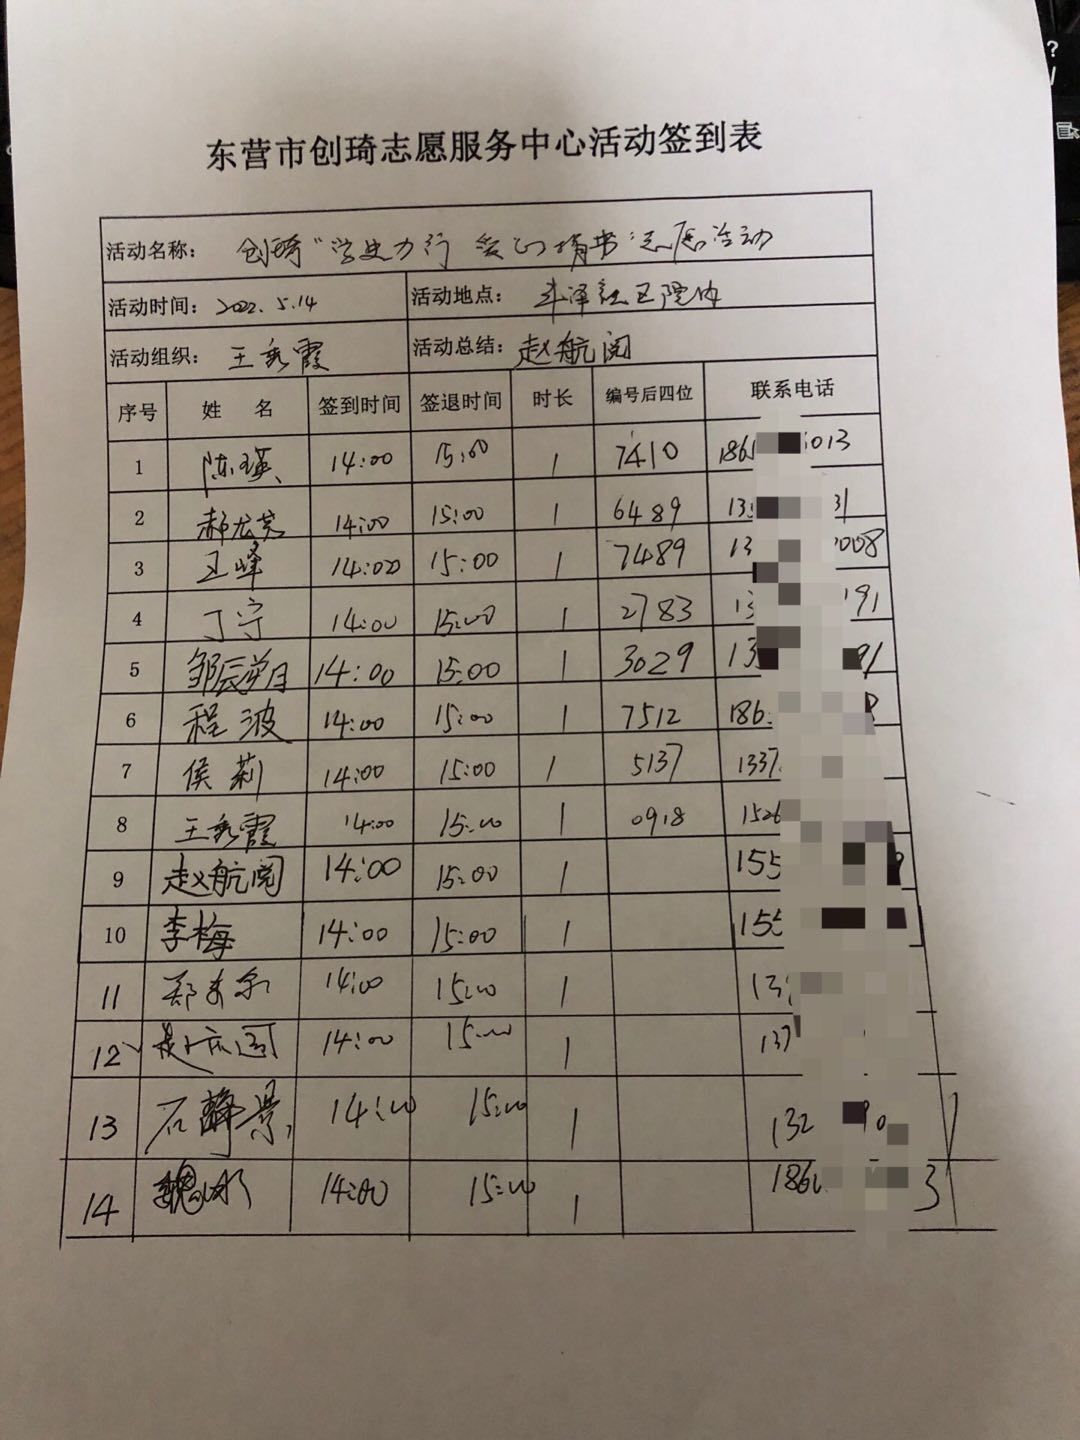 东营市创琦志愿服务中心活动签到表
活动名称： 创琦“学史力行 爱心捐书”志愿活动
活动时间：2022.5.14 活动地点：
活动组织：王秀霞 活动总结：赵航阅
序号 姓 名 签到时间 签退时间 时长 编号后四位 联系电话
1 陈瑛 14:00 15:00 1 7410 186 6013
2 郝龙英 14:00 15:00 1 6489 13 31
3 王峰 14:00 15:00 1 7489 13 2008
4 丁宁 14:00 15:00 1 2783 13 191
5 邹辰明月 14:00 15:00 1 3029 13 91
6 程波 14:00 15:00 1 7512 186
7 侯莉 14:00 15:00 1 5137 1337
8 王秀霞 14:00 15:00 1 0918 1526
9 赵航阅 14:00 15:00 1 155
10 李梅 14:00 15:00 1 155
11 14:00 15:00 1 13
12 14:00 15:00 1 137
13 石静景 14:00 15:00 1 132 90 1
14 14:00 15:00 1 186 3